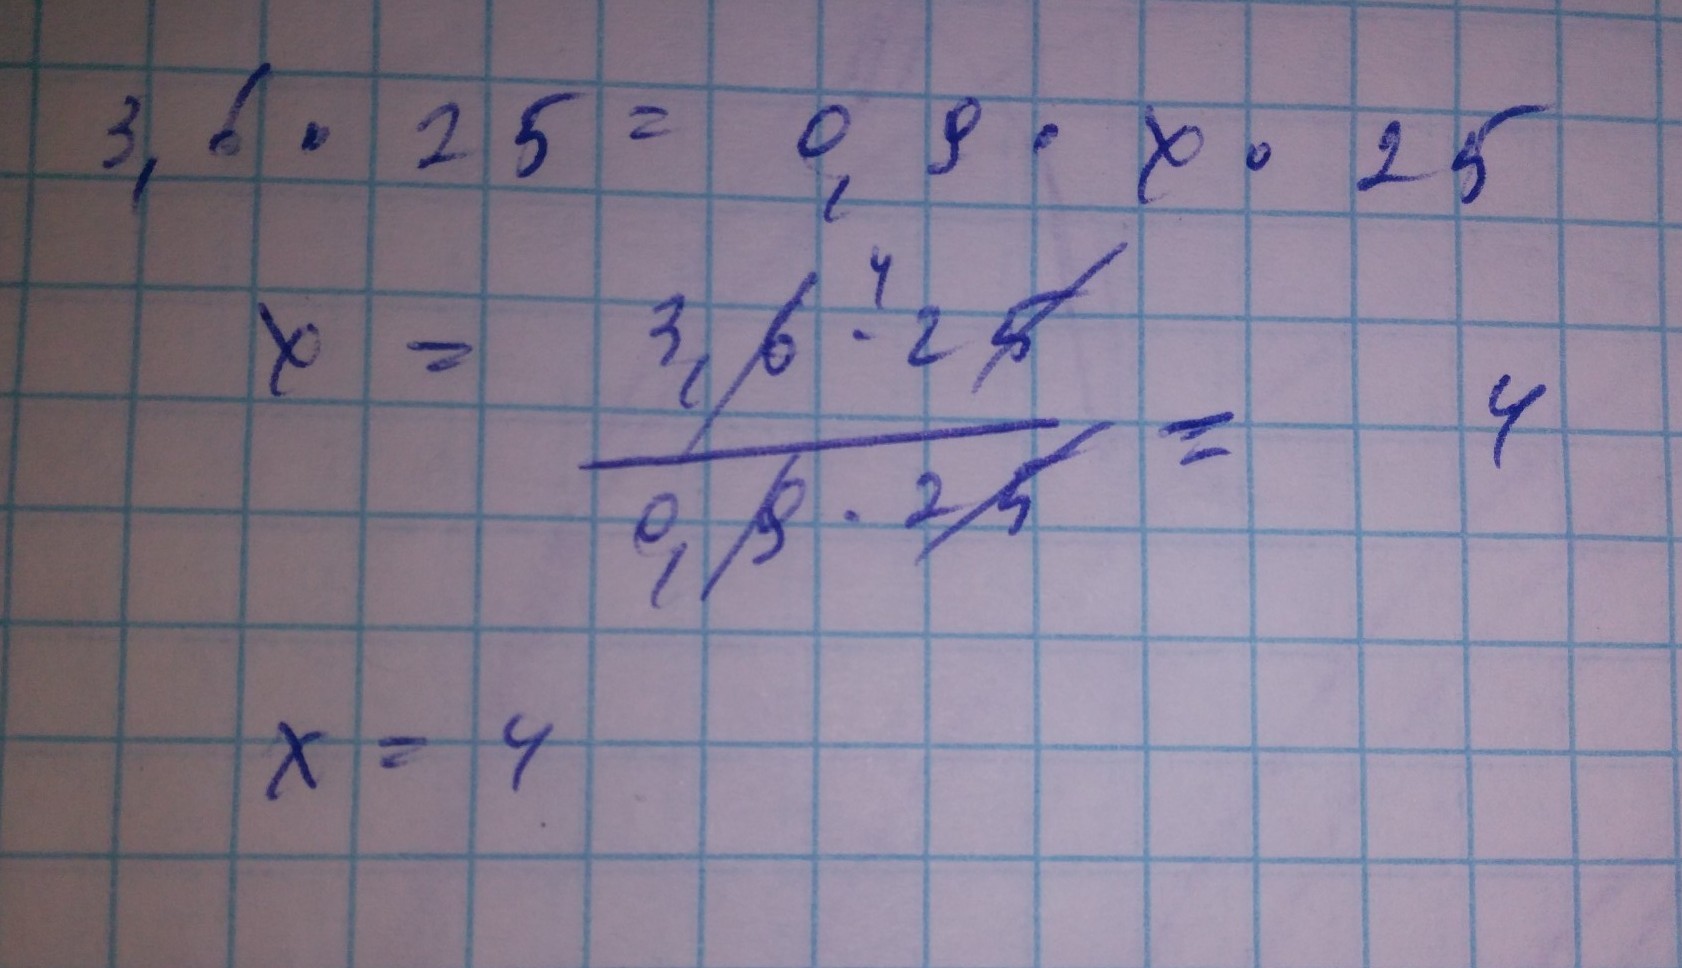 3,6 · 25 = 0,9 · x · 25
x = 3,6 · 25 / 0,9 · 25 = 4
4
x = 4